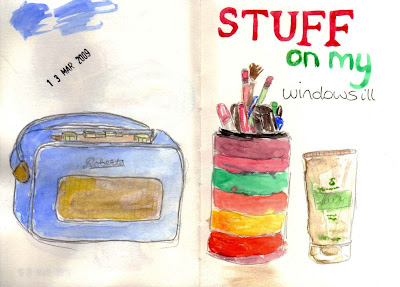 13 MAR 2009
STUFF
on my
windowsill
Roberts